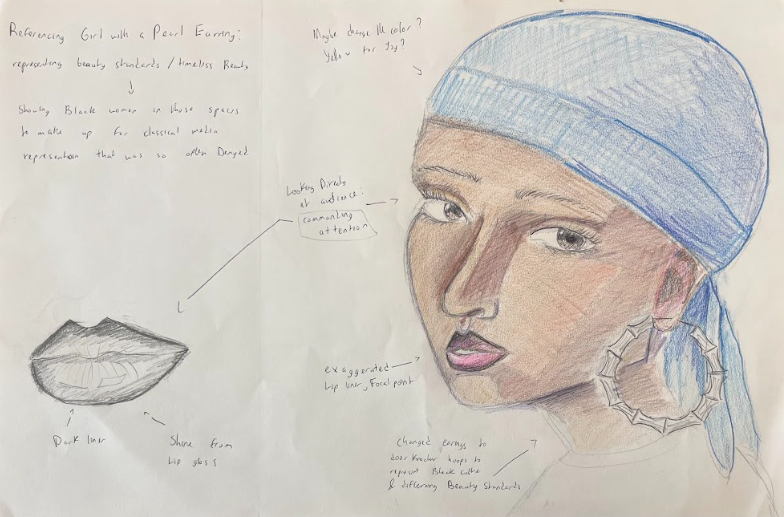 Referencing Girl with a Pearl Earring:
representing beauty standards / timeless Beauty
Showing Black women in those spaces
to make up for classical media
representation that was so often Denied
Maybe change the color?
Yellow for joy?
Looking Directly
at audience:
commanding
attention
exaggerated
Lip liner, Focal point
Dark liner
Shine from
Lip gloss
Changed earrings to
Door knocker hoops to
represent Black culture
& differing Beauty Standards